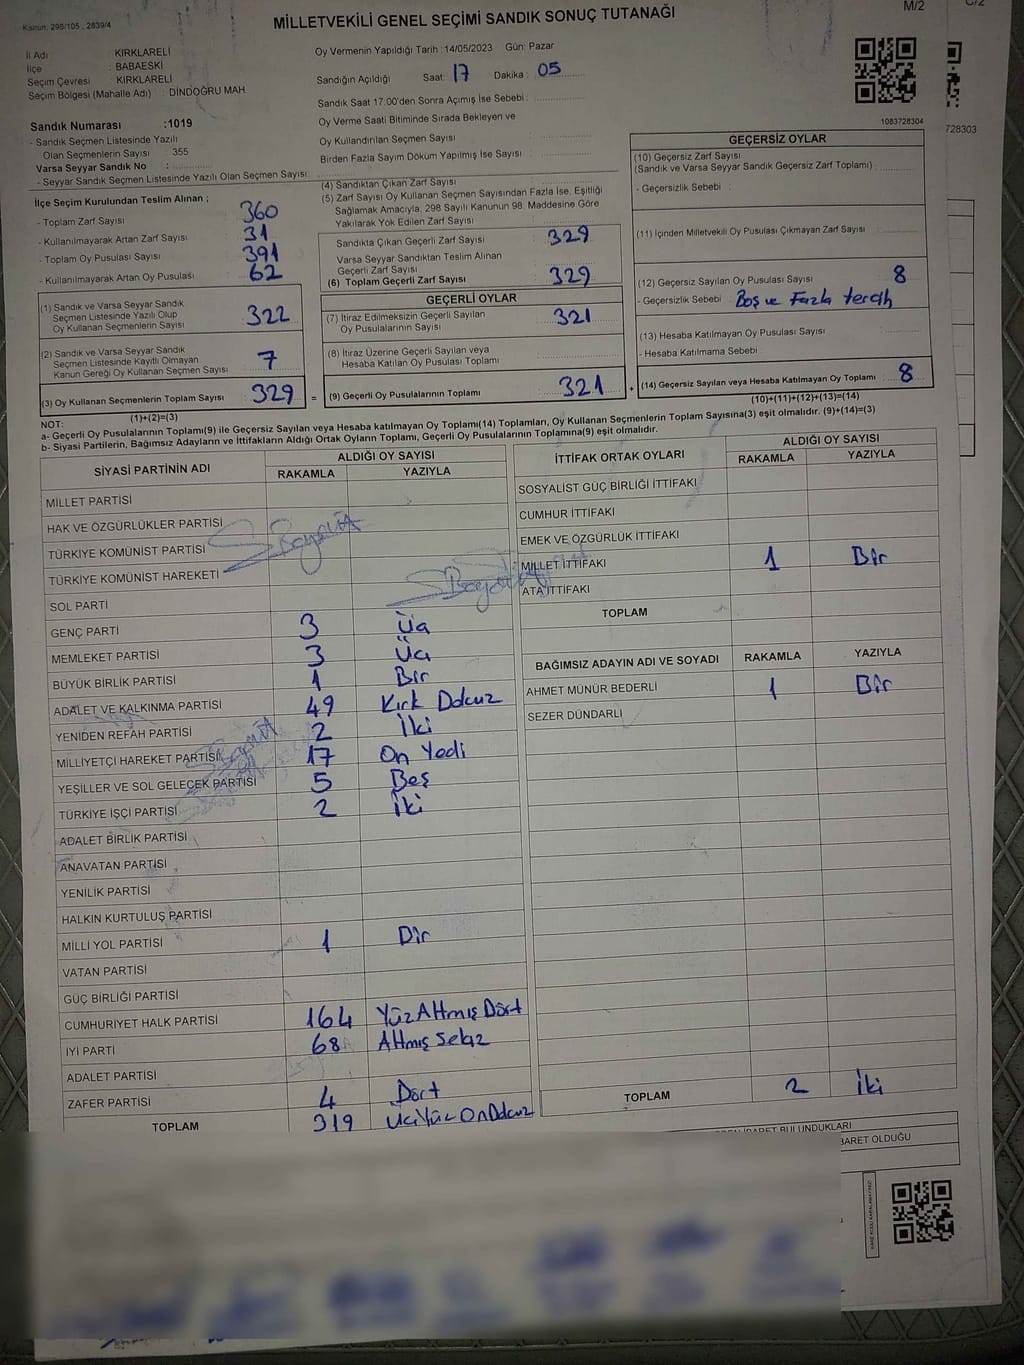 Kanun: 298/105 , 2839/4
MİLLETVEKİLİ GENEL SEÇİMİ SANDIK SONUÇ TUTANAĞI
M/2
C/2
İl Adı : KIRKLARELİ
İlçe : BABAESKİ
Seçim Çevresi : KIRKLARELİ
Seçim Bölgesi (Mahalle Adı) : DİNDOĞRU MAH
Oy Vermenin Yapıldığı Tarih : 14/05/2023 Gün: Pazar
Sandığın Açıldığı Saat: 17 Dakika : 05
Sandık Saat 17:00'den Sonra Açımış İse Sebebi :
Oy Verme Saati Bitiminde Sırada Bekleyen ve
Oy Kullandırılan Seçmen Sayısı :
Birden Fazla Sayım Döküm Yapılmış İse Sayısı :
1083728304
728303
Sandık Numarası :1019
- Sandık Seçmen Listesinde Yazılı
Olan Seçmenlerin Sayısı : 355
Varsa Seyyar Sandık No :
- Seyyar Sandık Seçmen Listesinde Yazılı Olan Seçmen Sayısı:
İlçe Seçim Kurulundan Teslim Alınan ;
- Toplam Zarf Sayısı 360
- Kullanılmayarak Artan Zarf Sayısı 31
- Toplam Oy Pusulası Sayısı 391
- Kullanılmayarak Artan Oy Pusulası 62
(1) Sandık ve Varsa Seyyar Sandık
Seçmen Listesinde Yazılı Olup
Oy Kullanan Seçmenlerin Sayısı 322
(2) Sandık ve Varsa Seyyar Sandık
Seçmen Listesinde Kayıtlı Olmayan
Kanun Gereği Oy Kullanan Seçmen Sayısı 7
(3) Oy Kullanan Seçmenlerin Toplam Sayısı 329 =
(1)+(2)=(3)
(4) Sandıktan Çıkan Zarf Sayısı
(5) Zarf Sayısı Oy Kullanan Seçmen Sayısından Fazla İse, Eşitliği
Sağlamak Amacıyla, 298 Sayılı Kanunun 98. Maddesine Göre
Yakılarak Yok Edilen Zarf Sayısı :
Sandıkta Çıkan Geçerli Zarf Sayısı 329
Varsa Seyyar Sandıktan Teslim Alınan
Geçerli Zarf Sayısı
(6) Toplam Geçerli Zarf Sayısı 329
GEÇERLİ OYLAR
(7) İtiraz Edilmeksizin Geçerli Sayılan
Oy Pusulalarının Sayısı 321
(8) İtiraz Üzerine Geçerli Sayılan veya
Hesaba Katılan Oy Pusulası Toplamı
(9) Geçerli Oy Pusulalarının Toplamı 321 +
GEÇERSİZ OYLAR
(10) Geçersiz Zarf Sayısı
(Sandık ve Varsa Seyyar Sandık Geçersiz Zarf Toplamı) :
- Geçersizlik Sebebi :
(11) İçinden Milletvekili Oy Pusulası Çıkmayan Zarf Sayısı
(12) Geçersiz Sayılan Oy Pusulası Sayısı 8
- Geçersizlik Sebebi : Boş ve Fazla tercih
(13) Hesaba Katılmayan Oy Pusulası Sayısı
- Hesaba Katılmama Sebebi
(14) Geçersiz Sayılan veya Hesaba Katılmayan Oy Toplamı 8
(10)+(11)+(12)+(13)=(14)
NOT:
a- Geçerli Oy Pusulalarının Toplamı(9) ile Geçersiz Sayılan veya Hesaba katılmayan Oy Toplamı(14) Toplamları, Oy Kullanan Seçmenlerin Toplam Sayısına(3) eşit olmalıdır. (9)+(14)=(3)
b- Siyasi Partilerin, Bağımsız Adayların ve İttifakların Aldığı Ortak Oyların Toplamı, Geçerli Oy Pusulalarının Toplamına(9) eşit olmalıdır.
SİYASİ PARTİNİN ADI ALDIĞI OY SAYISI
RAKAMLA YAZIYLA
MİLLET PARTİSİ
HAK VE ÖZGÜRLÜKLER PARTİSİ
TÜRKİYE KOMÜNİST PARTİSİ
TÜRKİYE KOMÜNİST HAREKETİ
SOL PARTİ
GENÇ PARTİ 3 Üç
MEMLEKET PARTİSİ 3 Üç
BÜYÜK BİRLİK PARTİSİ 1 Bir
ADALET VE KALKINMA PARTİSİ 49 Kırk Dokuz
YENİDEN REFAH PARTİSİ 2 İki
MİLLİYETÇİ HAREKET PARTİSİ 17 On Yedi
YEŞİLLER VE SOL GELECEK PARTİSİ 5 Beş
TÜRKİYE İŞÇİ PARTİSİ 2 İki
ADALET BİRLİK PARTİSİ
ANAVATAN PARTİSİ
YENİLİK PARTİSİ
HALKIN KURTULUŞ PARTİSİ
MİLLİ YOL PARTİSİ 1 Bir
VATAN PARTİSİ
GÜÇ BİRLİĞİ PARTİSİ
CUMHURİYET HALK PARTİSİ 164 Yüz Altmış Dört
İYİ PARTİ 68 Altmış Sekiz
ADALET PARTİSİ
ZAFER PARTİSİ 4 Dört
TOPLAM 319 Üç Yüz On Dokuz
İTTİFAK ORTAK OYLARI ALDIĞI OY SAYISI
RAKAMLA YAZIYLA
SOSYALİST GÜÇ BİRLİĞİ İTTİFAKI
CUMHUR İTTİFAKI
EMEK VE ÖZGÜRLÜK İTTİFAKI
MİLLET İTTİFAKI 1 Bir
ATA İTTİFAKI
TOPLAM
BAĞIMSIZ ADAYIN ADI VE SOYADI RAKAMLA YAZIYLA
AHMET MÜNÜR BEDERLİ 1 Bir
SEZER DÜNDARLI
TOPLAM 2 İki
İBARET BULUNDUKLARI
BARET OLDUĞU